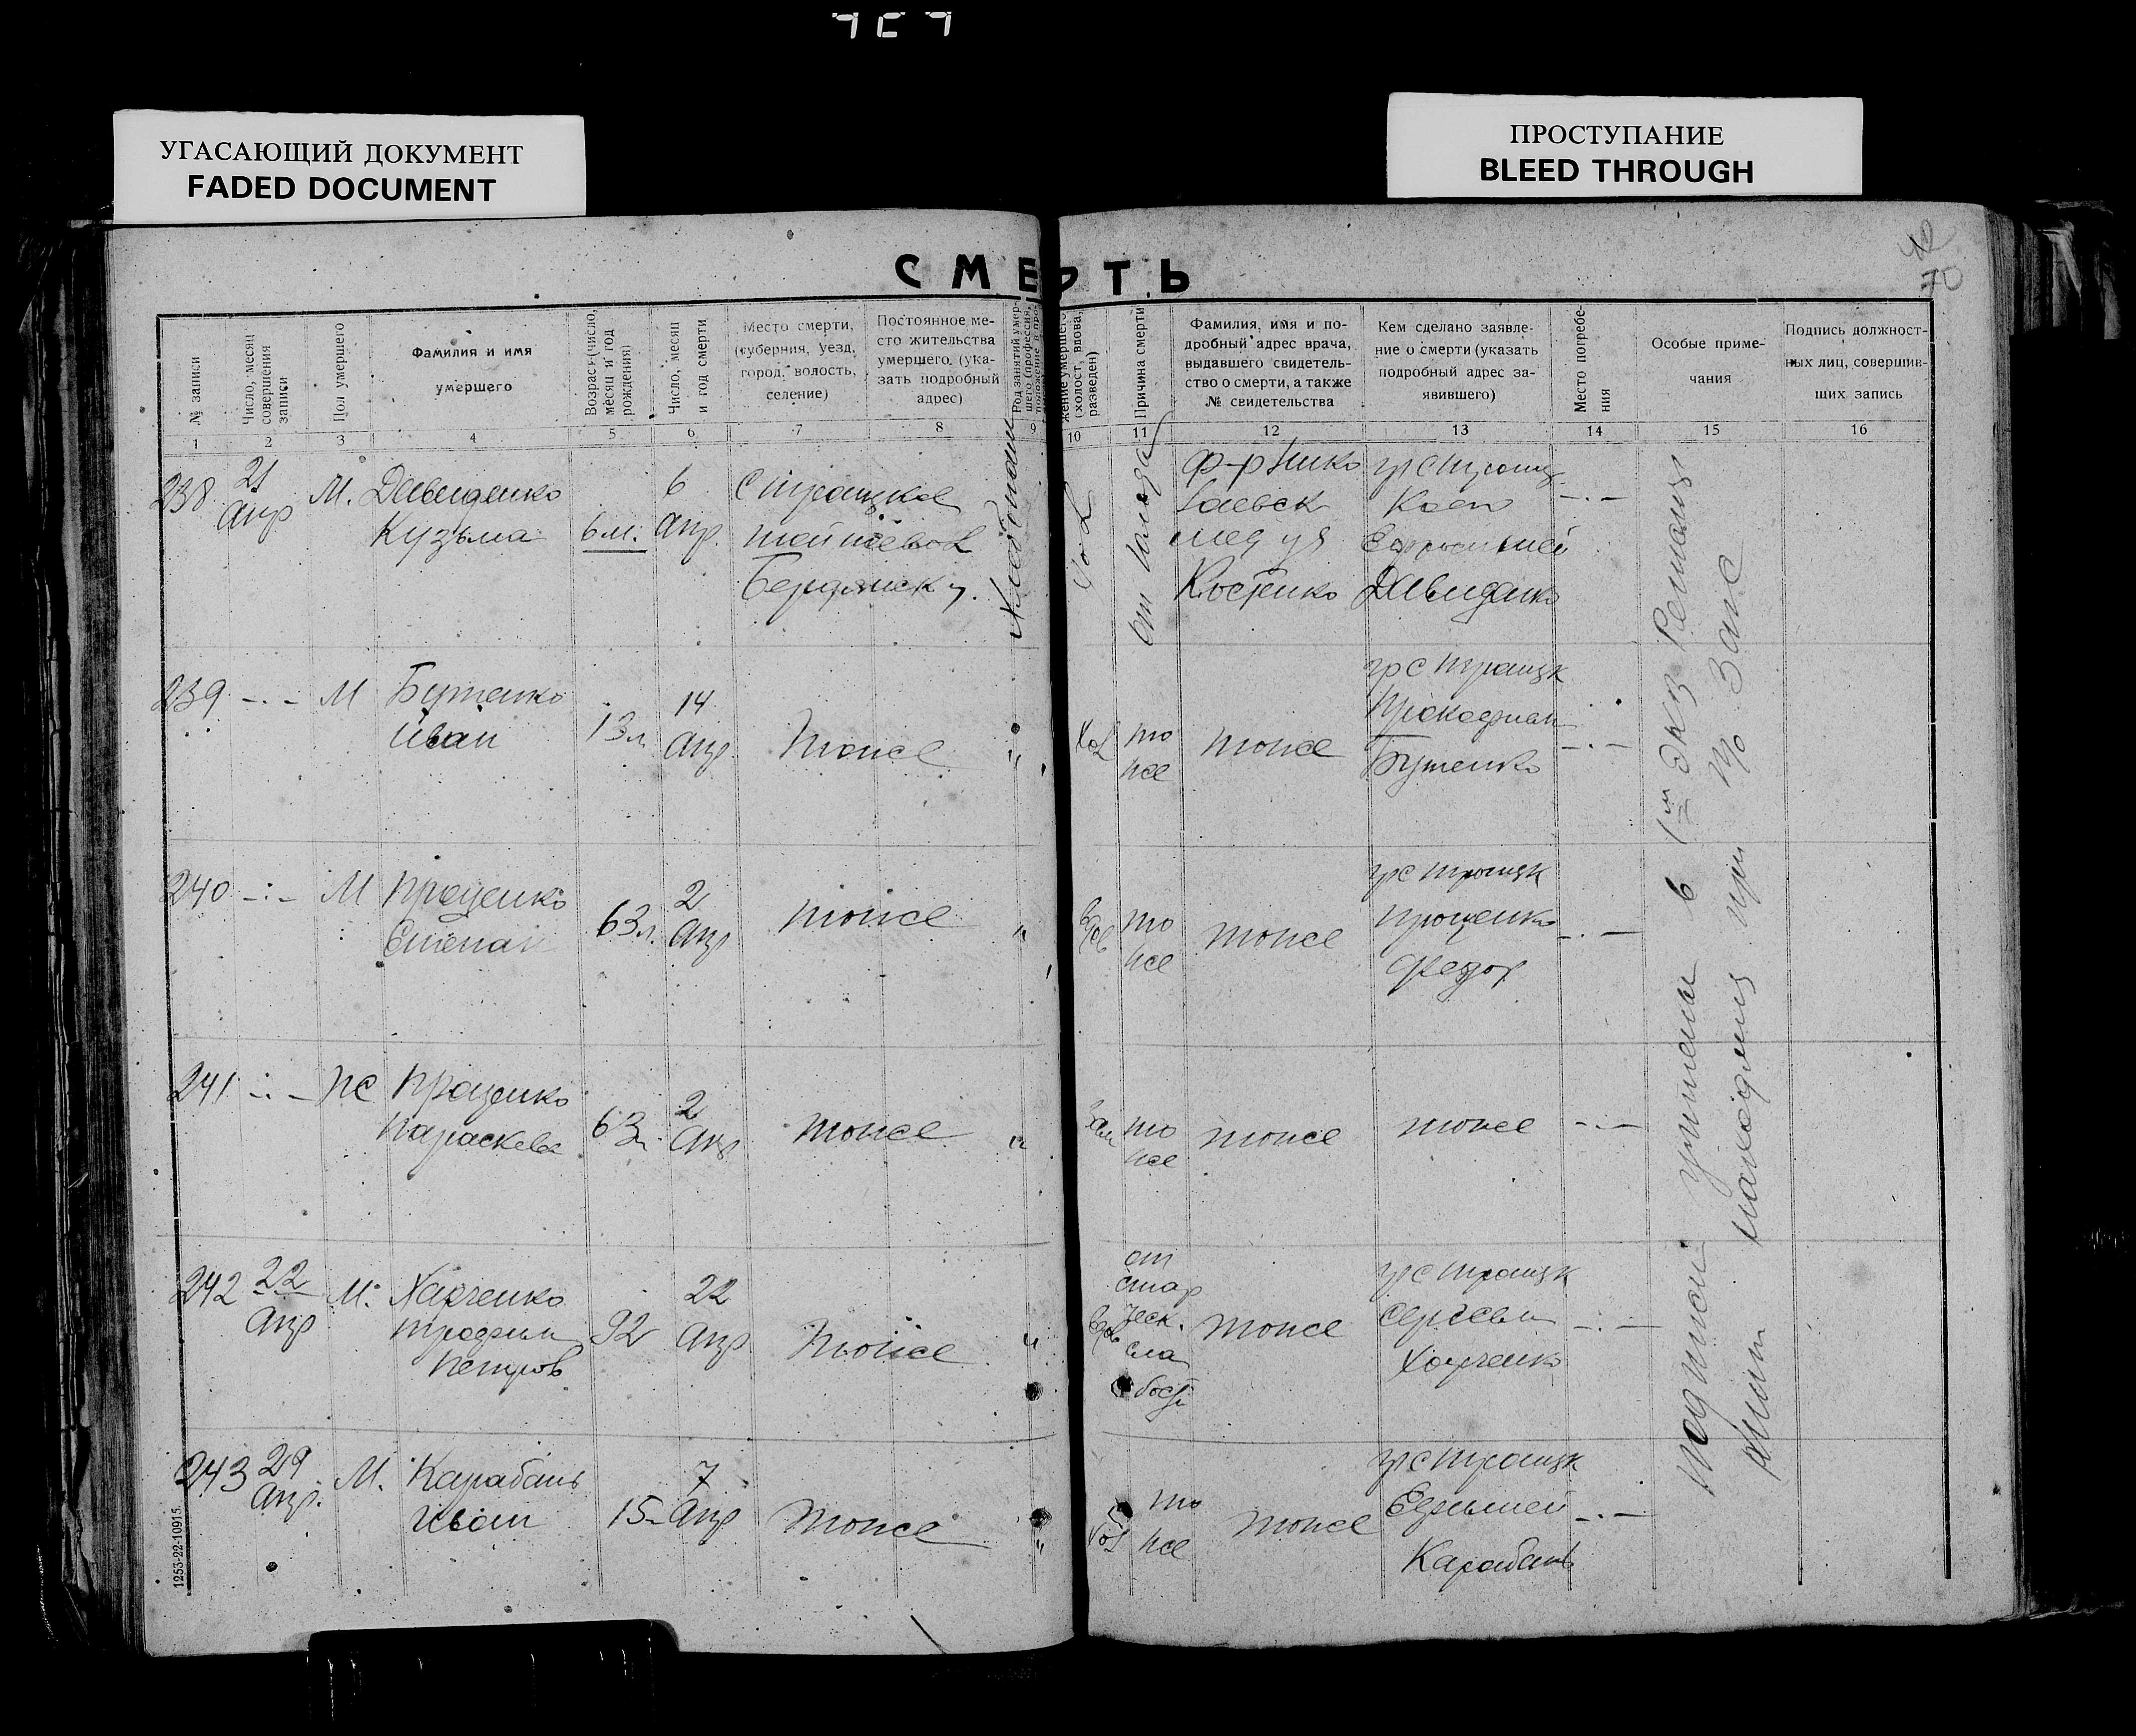 УГАСАЮЩИЙ ДОКУМЕНТ
FADED DOCUMENT
ПРОСТУПАНИЕ
BLEED THROUGH
42
70
СМЕРТЬ
№ записи
Число, месяц совершения записи
Пол умершего
Фамилия и имя умершего
Возраст (число, месяц и год рождения)
Число, месяц и год смерти
Место смерти, (губерния, уезд, город, волость, селение)
Постоянное место жительства умершего, (указать подробный адрес)
Род занятий умершего (профессия, положение
жение умершего (холост, вдова, разведен)
Причина смерти
Фамилия, имя и подробный адрес врача, выдавшего свидетельство о смерти, а также № свидетельства
Кем сделано заявление о смерти (указать подробный адрес заявившего)
Место погребения
Особые примечания
Подпись должностных лиц, совершивших запись
1 2 3 4 5 6 7 8 9 10 11 12 13 14 15 16
238 21 Апр М. Давиденко Кузьма 6 м. 6 Апр. С Троицкое
Бердянск у.
Хлебопаш
Хол
от голода
Костенко
гр с Троиц
Давиденко
239 -.- М Бутенко Иван 13 л 14 Апр тоже " Хол то же тоже гр с Троицк
Бутенко -.-
240 -.- М Проценко Степан 63 л. 2 Апр тоже " Вдов то же тоже гр с Троицк Проценко Федор -.-
241 -.- Ж Проценко Параскева 63 л. 2 Апр тоже " Зам то же тоже тоже -.-
242 22 Апр М. Харченко Трофим Петров 92 22 Апр тоже " Вдов от старческ. слабости тоже гр с Троицк
Харченко -.-
243 29 Апр. М. Карабань Иван 15 7 Апр тоже " Хол то же тоже гр с Троицк
Карабань -.-
Подписи учинены в 1м экз
находящ при
Загс
1253-22-10915